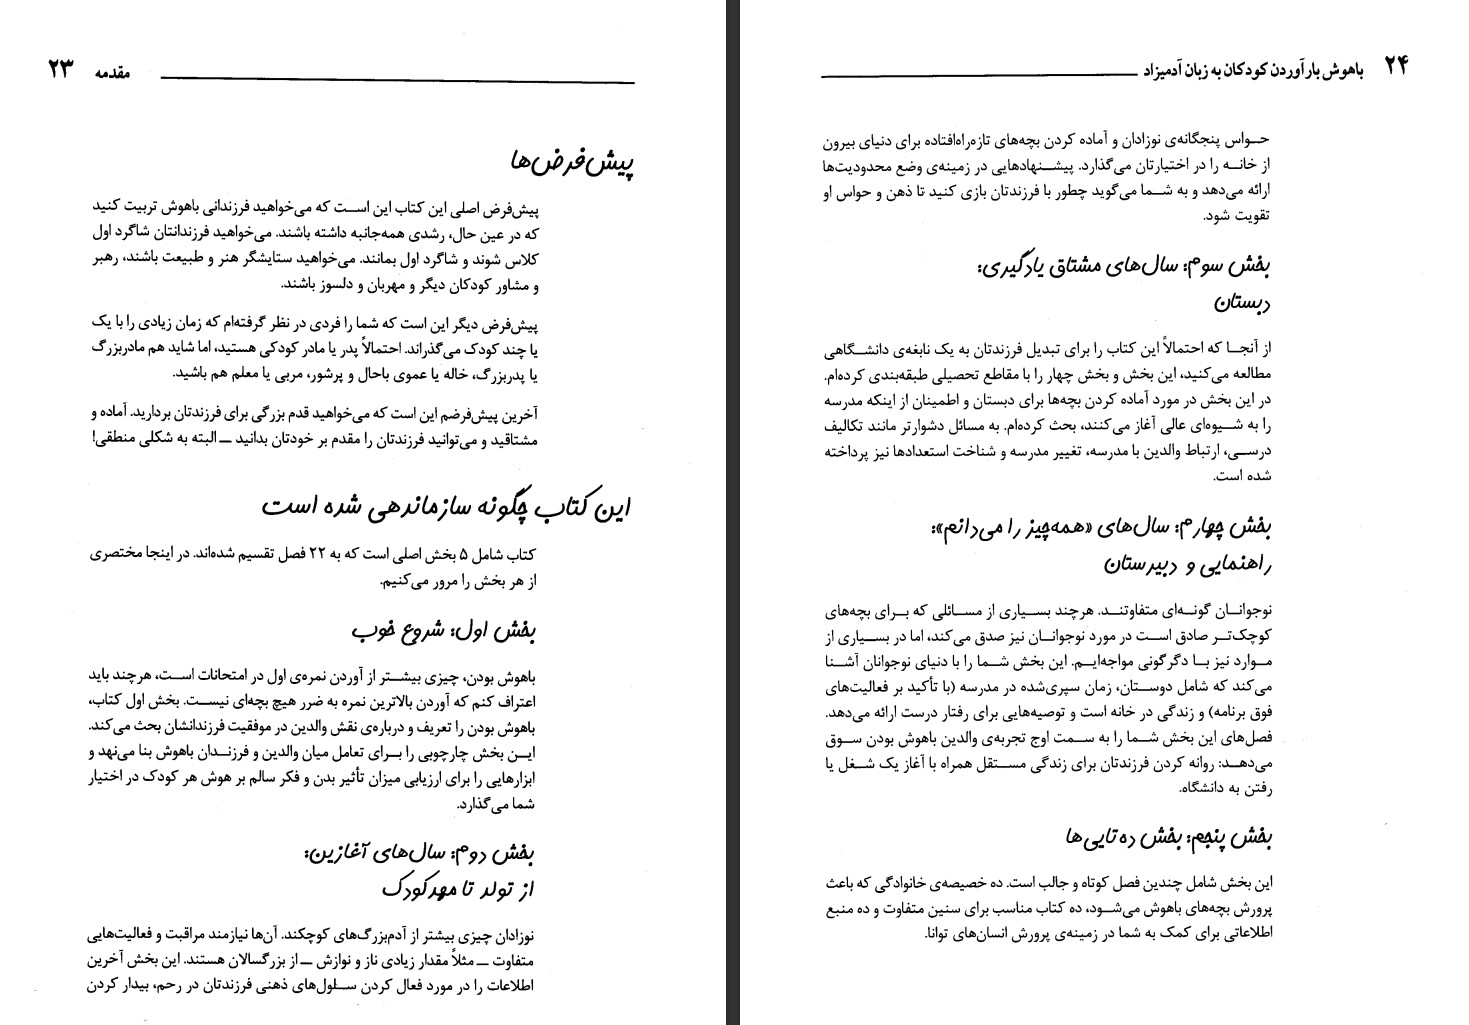 مقدمه ۲۳
پیش‌فرض‌ها
پیش‌فرض اصلی این کتاب این است که می‌خواهید فرزندانی باهوش تربیت کنید
که در عین حال، رشدی همه‌جانبه داشته باشند. می‌خواهید فرزندانتان شاگرد اول
کلاس شوند و شاگرد اول بمانند. می‌خواهید ستایشگر هنر و طبیعت باشند، رهبر
و مشاور کودکان دیگر و مهربان و دلسوز باشند.
پیش‌فرض دیگر این است که شما را فردی در نظر گرفته‌ام که زمان زیادی را با یک
یا چند کودک می‌گذراند. احتمالاً پدر یا مادر کودکی هستید، اما شاید هم مادربزرگ
یا پدربزرگ، خاله یا عموی باحال و پرشور، مربی یا معلم هم باشید.
آخرین پیش‌فرضم این است که می‌خواهید قدم بزرگی برای فرزندتان بردارید. آماده و
مشتاقید و می‌توانید فرزندتان را مقدم بر خودتان بدانید ـ البته به شکلی منطقی!
این کتاب چگونه سازماندهی شده است
کتاب شامل ۵ بخش اصلی است که به ۲۲ فصل تقسیم شده‌اند. در اینجا مختصری
از هر بخش را مرور می‌کنیم.
بخش اول: شروع خوب
باهوش بودن، چیزی بیشتر از آوردن نمره‌ی اول در امتحانات است، هرچند باید
اعتراف کنم که آوردن بالاترین نمره به ضرر هیچ بچه‌ای نیست. بخش اول کتاب،
باهوش بودن را تعریف و درباره‌ی نقش والدین در موفقیت فرزندانشان بحث می‌کند.
این بخش چارچوبی را برای تعامل میان والدین و فرزندان باهوش بنا می‌نهد و
ابزارهایی را برای ارزیابی میزان تأثیر بدن و فکر سالم بر هوش هر کودک در اختیار
شما می‌گذارد.
بخش دوم: سال‌های آغازین:
از تولد تا مهدکودک
نوزادان چیزی بیشتر از آدم‌بزرگ‌های کوچکند. آن‌ها نیازمند مراقبت و فعالیت‌هایی
متفاوت ـ مثلاً مقدار زیادی ناز و نوازش ـ از بزرگسالان هستند. این بخش آخرین
اطلاعات را در مورد فعال کردن سلول‌های ذهنی فرزندتان در رحم، بیدار کردن
۲۴ باهوش بارآوردن کودکان به زبان آدمیزاد
حواس پنجگانه‌ی نوزادان و آماده کردن بچه‌های تازه‌راه‌افتاده برای دنیای بیرون
از خانه را در اختیارتان می‌گذارد. پیشنهادهایی در زمینه‌ی وضع محدودیت‌ها
ارائه می‌دهد و به شما می‌گوید چطور با فرزندتان بازی کنید تا ذهن و حواس او
تقویت شود.
بخش سوم: سال‌های مشتاق یادگیری:
دبستان
از آنجا که احتمالاً این کتاب را برای تبدیل فرزندتان به یک نابغه‌ی دانشگاهی
مطالعه می‌کنید، این بخش و بخش چهار را با مقاطع تحصیلی طبقه‌بندی کرده‌ام.
در این بخش در مورد آماده کردن بچه‌ها برای دبستان و اطمینان از اینکه مدرسه
را به شیوه‌ای عالی آغاز می‌کنند، بحث کرده‌ام. به مسائل دشوارتر مانند تکالیف
درسی، ارتباط والدین با مدرسه، تغییر مدرسه و شناخت استعدادها نیز پرداخته
شده است.
بخش چهارم: سال‌های «همه‌چیز را می‌دانم»:
راهنمایی و دبیرستان
نوجوانان گونه‌ای متفاوتند. هرچند بسیاری از مسائلی که برای بچه‌های
کوچک‌تر صادق است در مورد نوجوانان نیز صدق می‌کند، اما در بسیاری از
موارد نیز با دگرگونی مواجه‌ایم. این بخش شما را با دنیای نوجوانان آشنا
می‌کند که شامل دوستان، زمان سپری‌شده در مدرسه (با تأکید بر فعالیت‌های
فوق برنامه) و زندگی در خانه است و توصیه‌هایی برای رفتار درست ارائه می‌دهد.
فصل‌های این بخش شما را به سمت اوج تجربه‌ی والدین باهوش بودن سوق
می‌دهد: روانه کردن فرزندتان برای زندگی مستقل همراه با آغاز یک شغل یا
رفتن به دانشگاه.
بخش پنجم: بخش ده تایی‌ها
این بخش شامل چندین فصل کوتاه و جالب است. ده خصیصه‌ی خانوادگی که باعث
پرورش بچه‌های باهوش می‌شود، ده کتاب مناسب برای سنین متفاوت و ده منبع
اطلاعاتی برای کمک به شما در زمینه‌ی پرورش انسان‌های توانا.